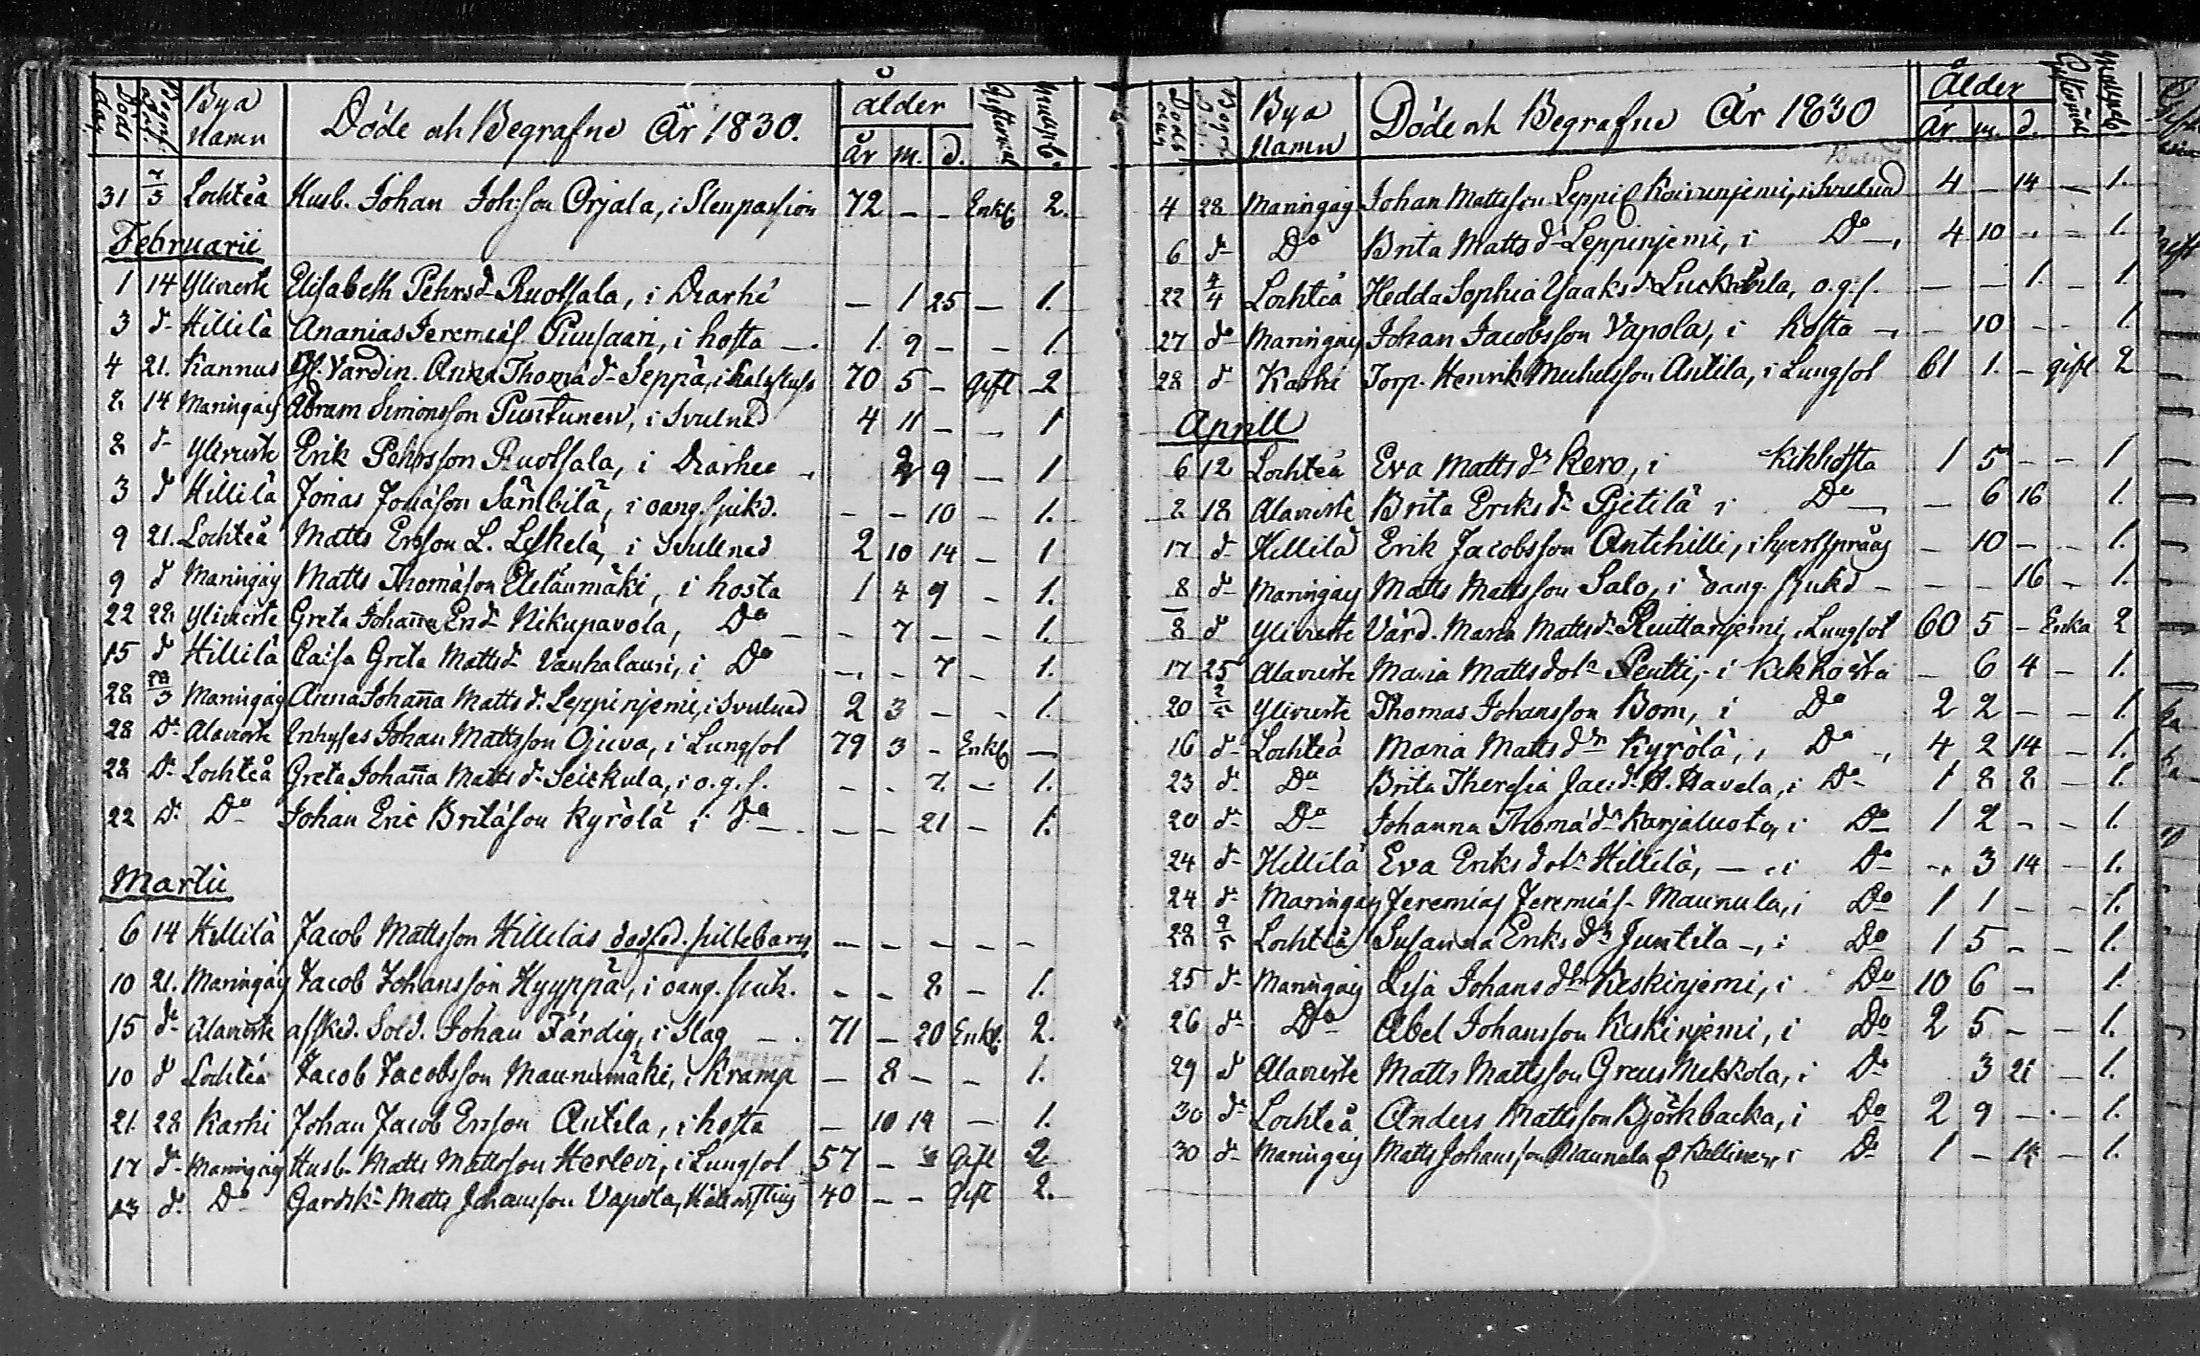 Döds dag Begr. dat. Bya Namn Döde och Begrafne År 1830. ålder år m. d.
31 Lochteå Husb. Johan Johsson Orjala, i Stenpassion 72 - - Enkl. 2.
Februarii
1 14 Ylivieste Elisabeth Pehrsd. Ruotsala, i Diarhé - 1 25 - 1.
3 d- Hillilä Ananias Jeremiæs. Piuusaari, i hosta - 1. 9 - - 1.
4 21. Kannus Värdin. Anna Thomæd- Seppä, i 70 5 - Gift 2
8 14 Maringais Abram Simonsson Puntunen, i Svulnad 4 11 - - 1
8 d- Ylivieste Erik Pehrsson Ruotsala, i Diarhee 9 - 1
3 d Hillilä Jonas Jonæson Sämbilä, i oang. sjukd. - - 10 - 1.
9 21. Lochteå Matts Ersson L. Leskelä, i Svullnad 2 10 14 - 1
9 d Maringais Matts Thomæson Eteläumäki, i hosta 1 4 9 - 1.
22 28 Ylivieste Greta Johanna End. Nikupavola, Do - 7 - - 1.
15 d Hillilä Caisa Greta Mattsd- Vanhalauri, i Do - - 7 - 1.
28 Maringais Anna Johanna Matts d. Leppinjemi, i Svulnad 2 3 - - 1.
28 Do Alavieste Enhyses Johan Mattsson Ojuva, i Lungsot 79 3 - Enkl. -
28 Do Lochteå Greta Johanna Matts d- Seickula, i o.g.s. - - 7. - 1.
22 D. Do Johan Eric Britæson Kyrölä i do - - 21 - 1.
Martii
6 14 Hillilä Jacob Mattsson Hillilas dödföd. piltebarn - - - - -
10 21. Maringais Jacob Johansson Hyyppä, i oang. sjuk. - - 8 - 1.
15 d- Alavieste afsked. Sold. Johan Färdig, i Slag - 71 - 20 Enkl. 2.
10 d Lochteå Jacob Jacobsson Maunumäki, i Kramp - 8 - - 1.
21 28 Karhi Johan Jacob Ersson Antila, i hosta - 10 14 - 1.
17 d- Maringais Husb. Matts Mattsson Herlevi, i Lungsot 57 - Gift 2
23 d. Do Gardsk. Matts Johansson Vapola, 40 - - Gift 2.
Döds dag Begr. Bya Namn Döde och Begrafne År 1830 Ålder År m. d.
4 28 Maringais Johan Mattsson Leppi Koivunjemi, i Svulnad 4 - 14 - 1.
6 d- Do Brita Matts d- Leppinjemi, i Do - 4 10 - - 1.
22 4/4 Lochteå Hedda Sophia Ysaaks d- Luckabila, o.g.s. - - 1. - 1
27 do Maringais Johan Jacobsson Vapola, i hosta - - 10 - - 1
28 d Karhi Torp. Henrik Michelsson Antila, i Lungsot 61 1. - gift 2
Aprill
6 12 Lochteå Eva Matts dr Kero, i Kikhosta 1 5 - - 1
2 18 Alavieste Brita Eriks dr Pjetilä i Do - 6 16 1.
17 d- Hillilä Erik Jacobsson Antihilli, i hjertsprång - 10 - - 1.
8 d- Maringais Matts Mattsson Salo, i oang. sjukd - - - 16 - 1.
8 d Ylivieste Värd. Maria Mattsdr Ruuttanjemi, Lungsot 60 5 - Enka 2
17 25 Alavieste Maria Mattsdotr Pentti, i Kikhosta - 6 4 - 1.
20 2/5 Ylivieste Thomas Johansson Bom, i Do 2 2 - - 1.
16 d- Lochteå Maria Matts dr Kyrölä, i Do 4 2 14 - 1.
23 d. Do Brita Theresia Jac. d. H. Havela, i Do 1 8 8 - 1.
20 d- Do Johanna Thomæ dr Karjaluoto, i Do 1 2 - - 1.
24 d- Hillilä Eva Eriks dotr Hillilä, - i Do - 3 14 - 1.
24 d- Maringais Jeremias Jeremiæs- Maunula, i Do 1 1 - - 1.
28 9/5 Lochteå Susanna Eriks dr Juntila -, i Do 1 5 - - 1.
25 d- Maringais Lisa Johans dtr Keskinjemi, i Do 10 6 - 1.
26 d- Do Abel Johansson Keskinjemi, i Do 2 5 - - 1.
29 d Alavieste Matts Mattsson Greus Mekkola, i Do 3 21 - 1.
30 d- Lochteå Anders Mattsson Björkbacka, i Do 2 9 - - 1.
30 d- Maringais Matts Johansson Maunula Do 1 - 14 - 1.